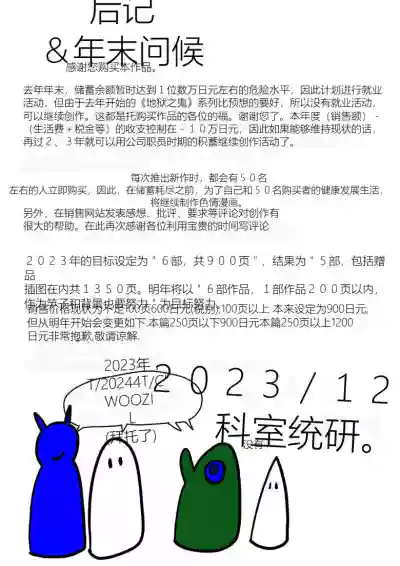 后记
&年末问候
感谢您购买本作品。
去年年末，储蓄余额暂时达到１位数万日元左右的危险水平，因此计划进行就业
活动，但由于去年开始的《地狱之鬼》系列比预想的要好，所以没有就业活动，
可以继续创作。这都是托购买作品的各位的福。谢谢您了。本年度（销售额）－
（生活费＋税金等）的收支控制在－１０万日元，因此如果能够维持现状的话，
再过２、３年就可以用公司职员时期的积蓄继续创作活动了。
每次推出新作时，都会有５０名
左右的人立即购买，因此，在储蓄耗尽之前，为了自己和５０名购买者的健康发展生活，
将继续制作色情漫画。
另外，在销售网站发表感想、批评、要求等评论对创作有
很大的帮助。在此再次感谢各位利用宝贵的时间写评论
２０２３年的目标设定为＂６部，共９００页＂，结果为＂５部，包括赠
品
插图在内共１３５０页。明年将以＂６部作品，１部作品２００页以内，
作为竿子和背景也要努力＂为目标努力
销售价格现状为不足100页600日元(税别);100页以上 本来设定为900日元,
但从明年开始会变更如下.本篇250页以下900日元本篇250页以上1200
日元非常抱歉,敬请谅解.
2023年
T/20244T/C
WOOZI
L
(拜托了)
２０２３/１２
科室统研。
没有